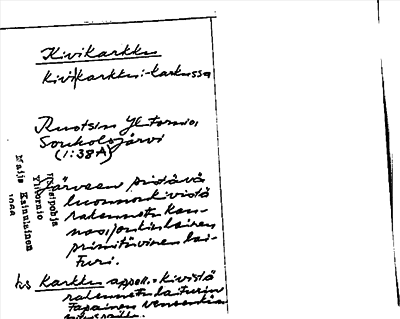 Kivikarkku
Kivi|karkku: -karkussa
Ruotsin Yl.tornio,
Soukolojärvi
(1:38A)
Järveen pistävä
luonnonkivistä
rakennettu kan-
nas, jonkinlainen
primitiivinen lai-
turi.
ks Karkku appell. = kivistä
rakennettu laiturin
tapainen
Länsipohja
Ylitornio
Maija Kainulainen
1966